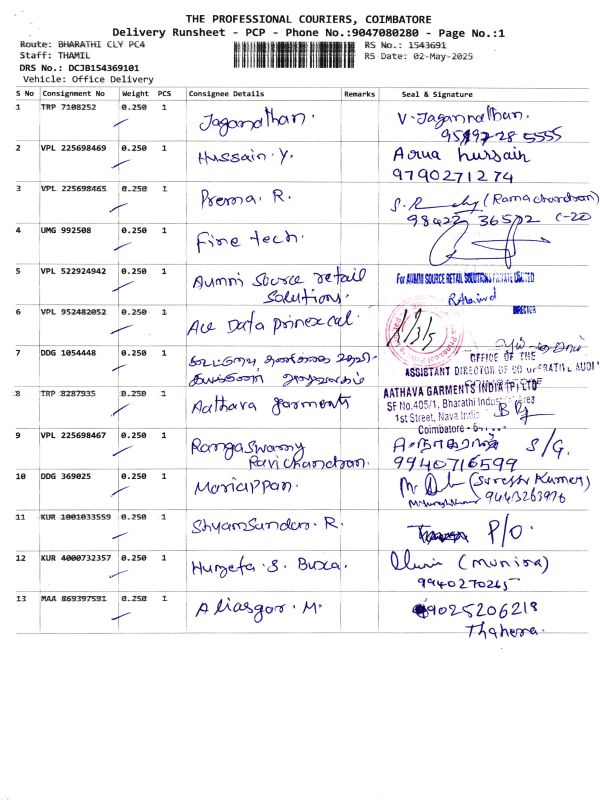 THE PROFESSIONAL COURIERS, COIMBATORE
Delivery Runsheet - PCP - Phone No.:9047080280 - Page No.:1
Route: BHARATHI CLY PC4
RS No.: 1543691
Staff: THAMIL
RS Date: 02-May-2025
DRS No.: DCJB154369101
Vehicle: Office Delivery
S No Consignment No Weight PCS Consignee Details Remarks Seal & Signature
1 TRP 7108252 0.250 1 Jagandthan. V. Jagannathan.
2 VPL 225698469 0.250 1 Hussain. Y. hussain
9790271274
3 VPL 225698465 0.250 1 Prema. R. (Rama chandran)
C-20
4 UMG 992508 0.250 1 Fine tech.
5 VPL 522924942 0.250 1 Aumni Source retail
Solutions.
For AUMNI SOURCE RETAIL SOLUTIONS PRIVATE LIMITED
DIRECTOR
6 VPL 952482052 0.250 1 Ace Data prinexcal.
7 DDG 1054448 0.250 1
OFFICE OF THE
ASSISTANT DIRECTOR OF CO OPERATIVE AUDI
8 TRP 8287935 0.250 1 Aathava garments
AATHAVA GARMENTS INDIA (P) LTD
SF No.405/1, Bharathi Indus Area
1st Street, Nava India
Coimbatore -
9 VPL 225698467 0.250 1 Rangaswamy
Ravichandran.
S/G.
9940716599
10 DDG 369025 0.250 1 Mariappan. (Suresh Kumar)
9443263976
11 KUR 1001033559 0.250 1 Shyamsundar. R. P/O.
12 KUR 4000732357 0.250 1 Huzefa. S. Buxa. (Munira)
9940270265
13 MAA 869397591 0.250 1 Aliasgar. M. 9025206218
Thahera.